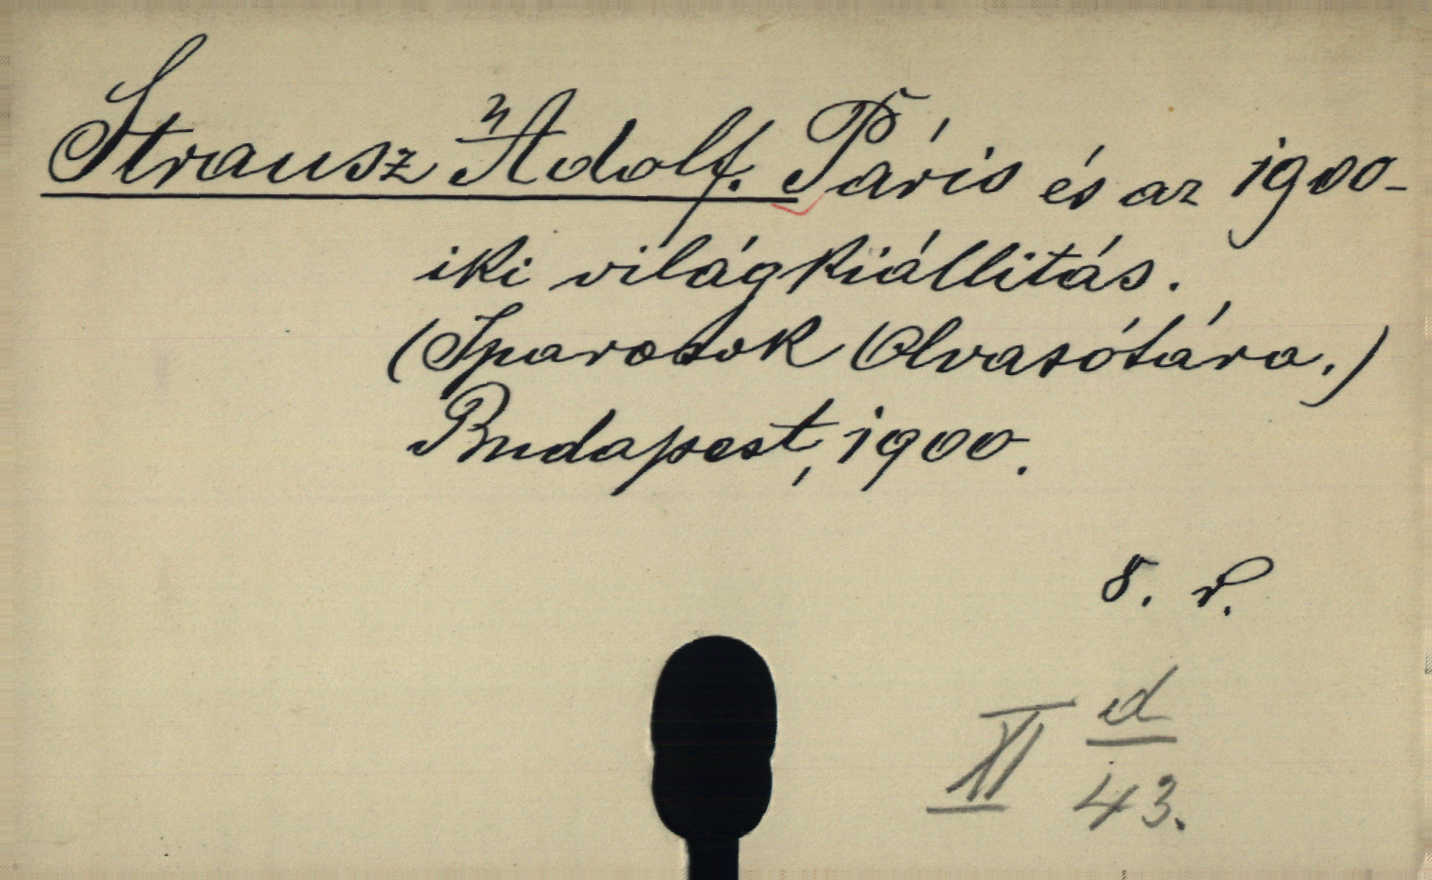 Strausz Adolf. Páris és az 1900-
iki világkiállitás.
(Iparosok Olvasótára.)
Budapest, 1900.
8. r.
XI d
43.